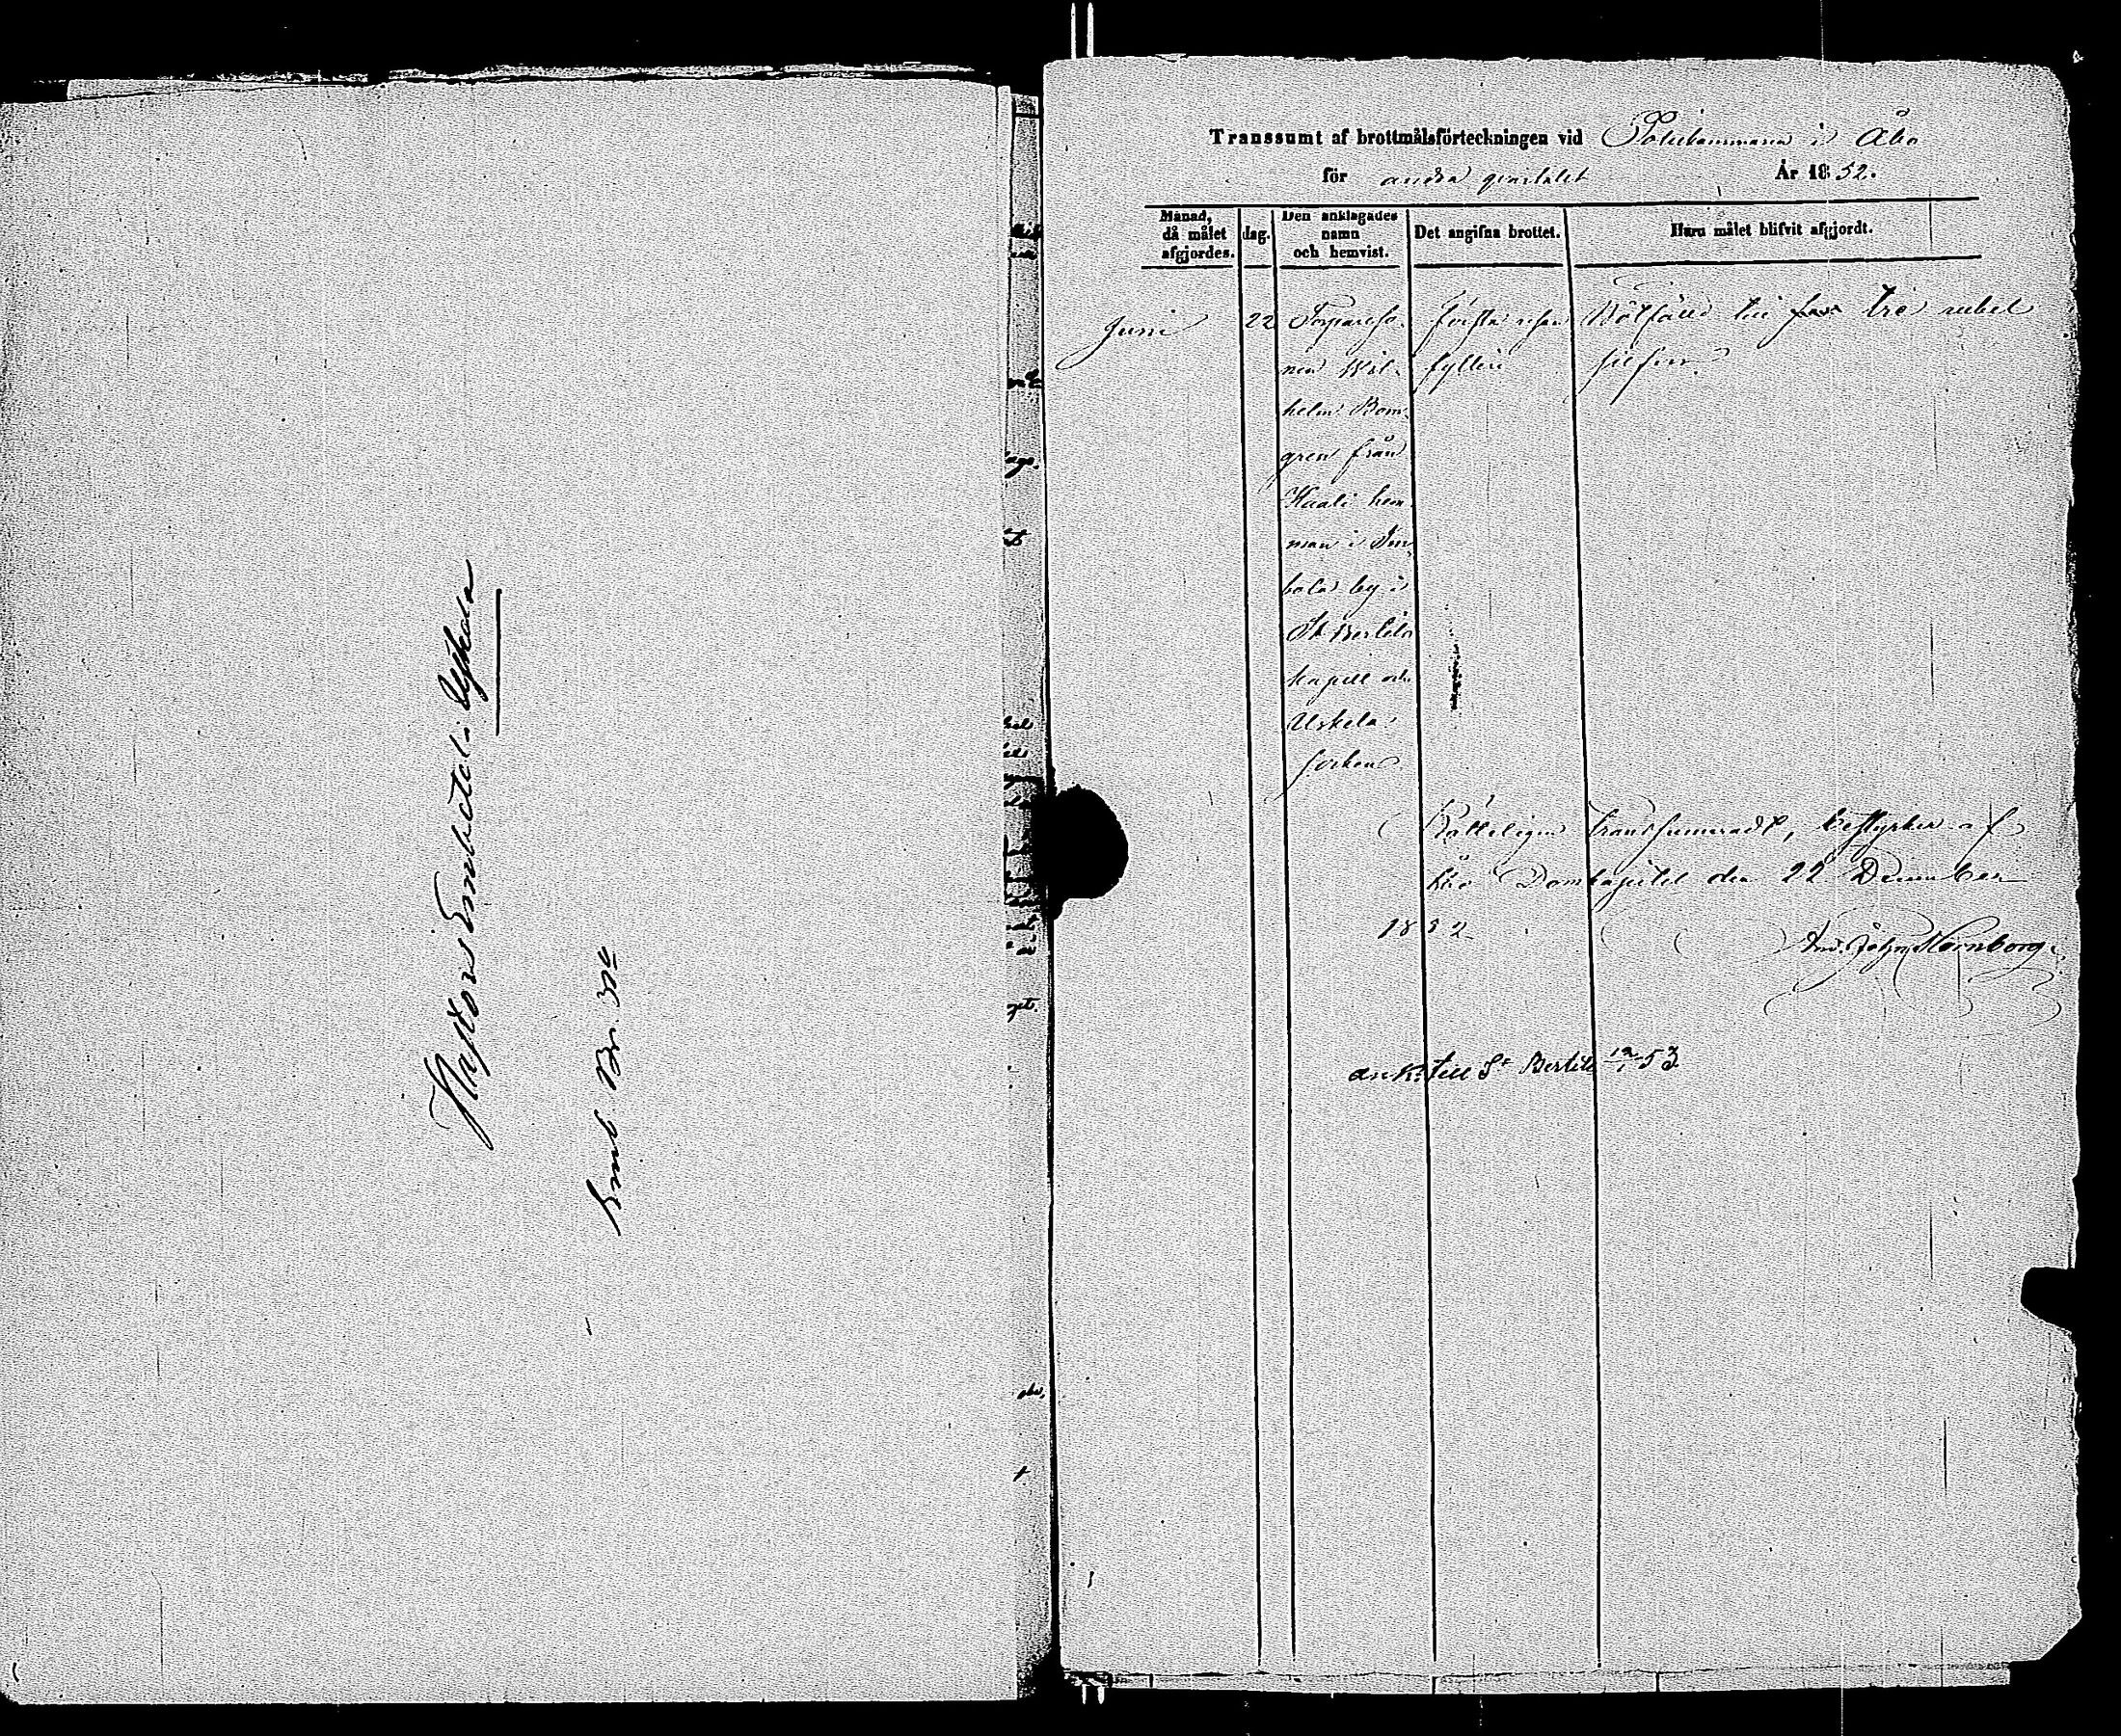 Pastors Embetet i Uskela
Emb. Br. 
Transsumt af brottmålsförteckningen vid Poliskammaren i Åbo
för andra qvartalet År 1852.
Månad, då målet afgjordes.
dag.
Den anklagades namn och hemvist.
Det angifna brottet.
Huru målet blifvit afgjordt.
Juni 22 Torpareso- första resan Bötfäld till tre rubel
nen Wil- fylleri silfver.
helm Bom-
gren från
hem-
man i
bala by i
St Bertils
kapell och
Uskela
socken
Rätteligen transsumeradt, bestyrker af
Åbo Domkapitel den 22 December
1852
And. John Hornborg
ank. till St Bertils 12/1 53